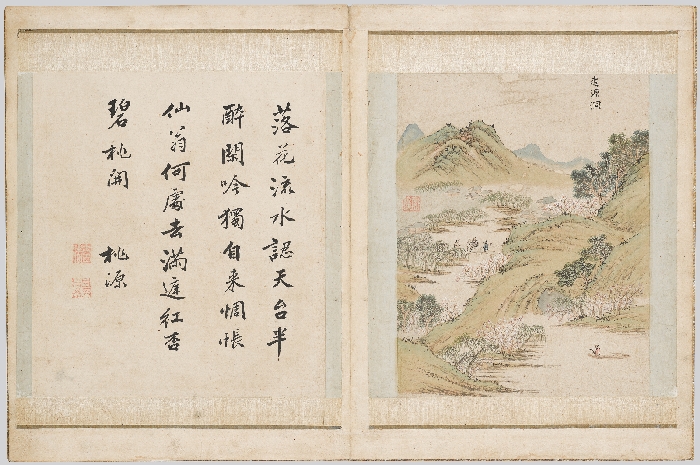 桃源洞
落花流水認天台半
醉閑吟獨自来惆悵
仙翁何處去滿庭紅杏
碧桃開
桃源